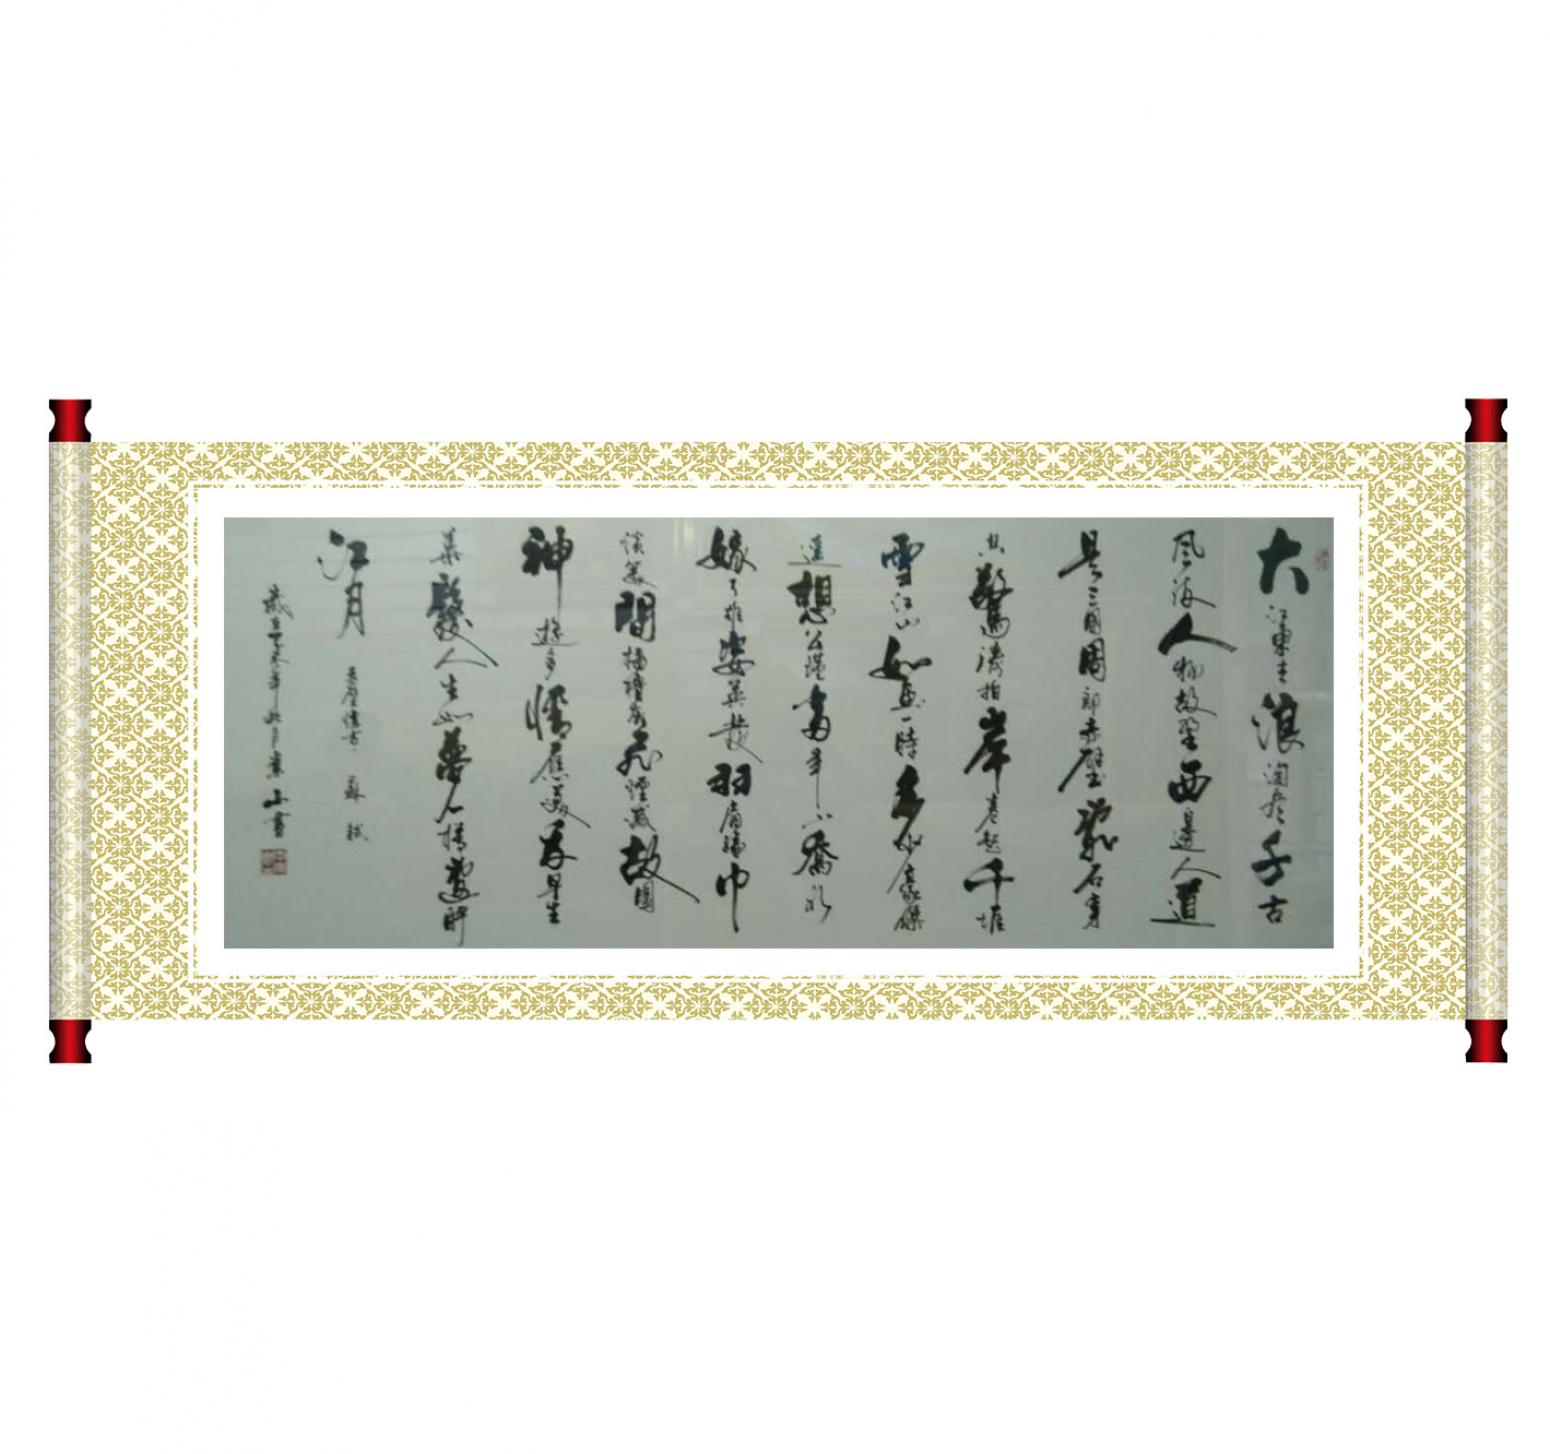 大江東去浪淘盡千古
風流人物故壘西邊人道
是三國周郎赤壁亂石穿
空驚濤拍岸卷起千堆
雪江山如畫一時多少豪傑
遙想公瑾當年小喬初
嫁了雄姿英發羽扇綸巾
談笑間檣櫓灰飛煙滅故國
神遊多情應笑我早生
華髮人生如夢一樽還酹
江月 赤壁懷古 蘇軾
歲在乙未年山書